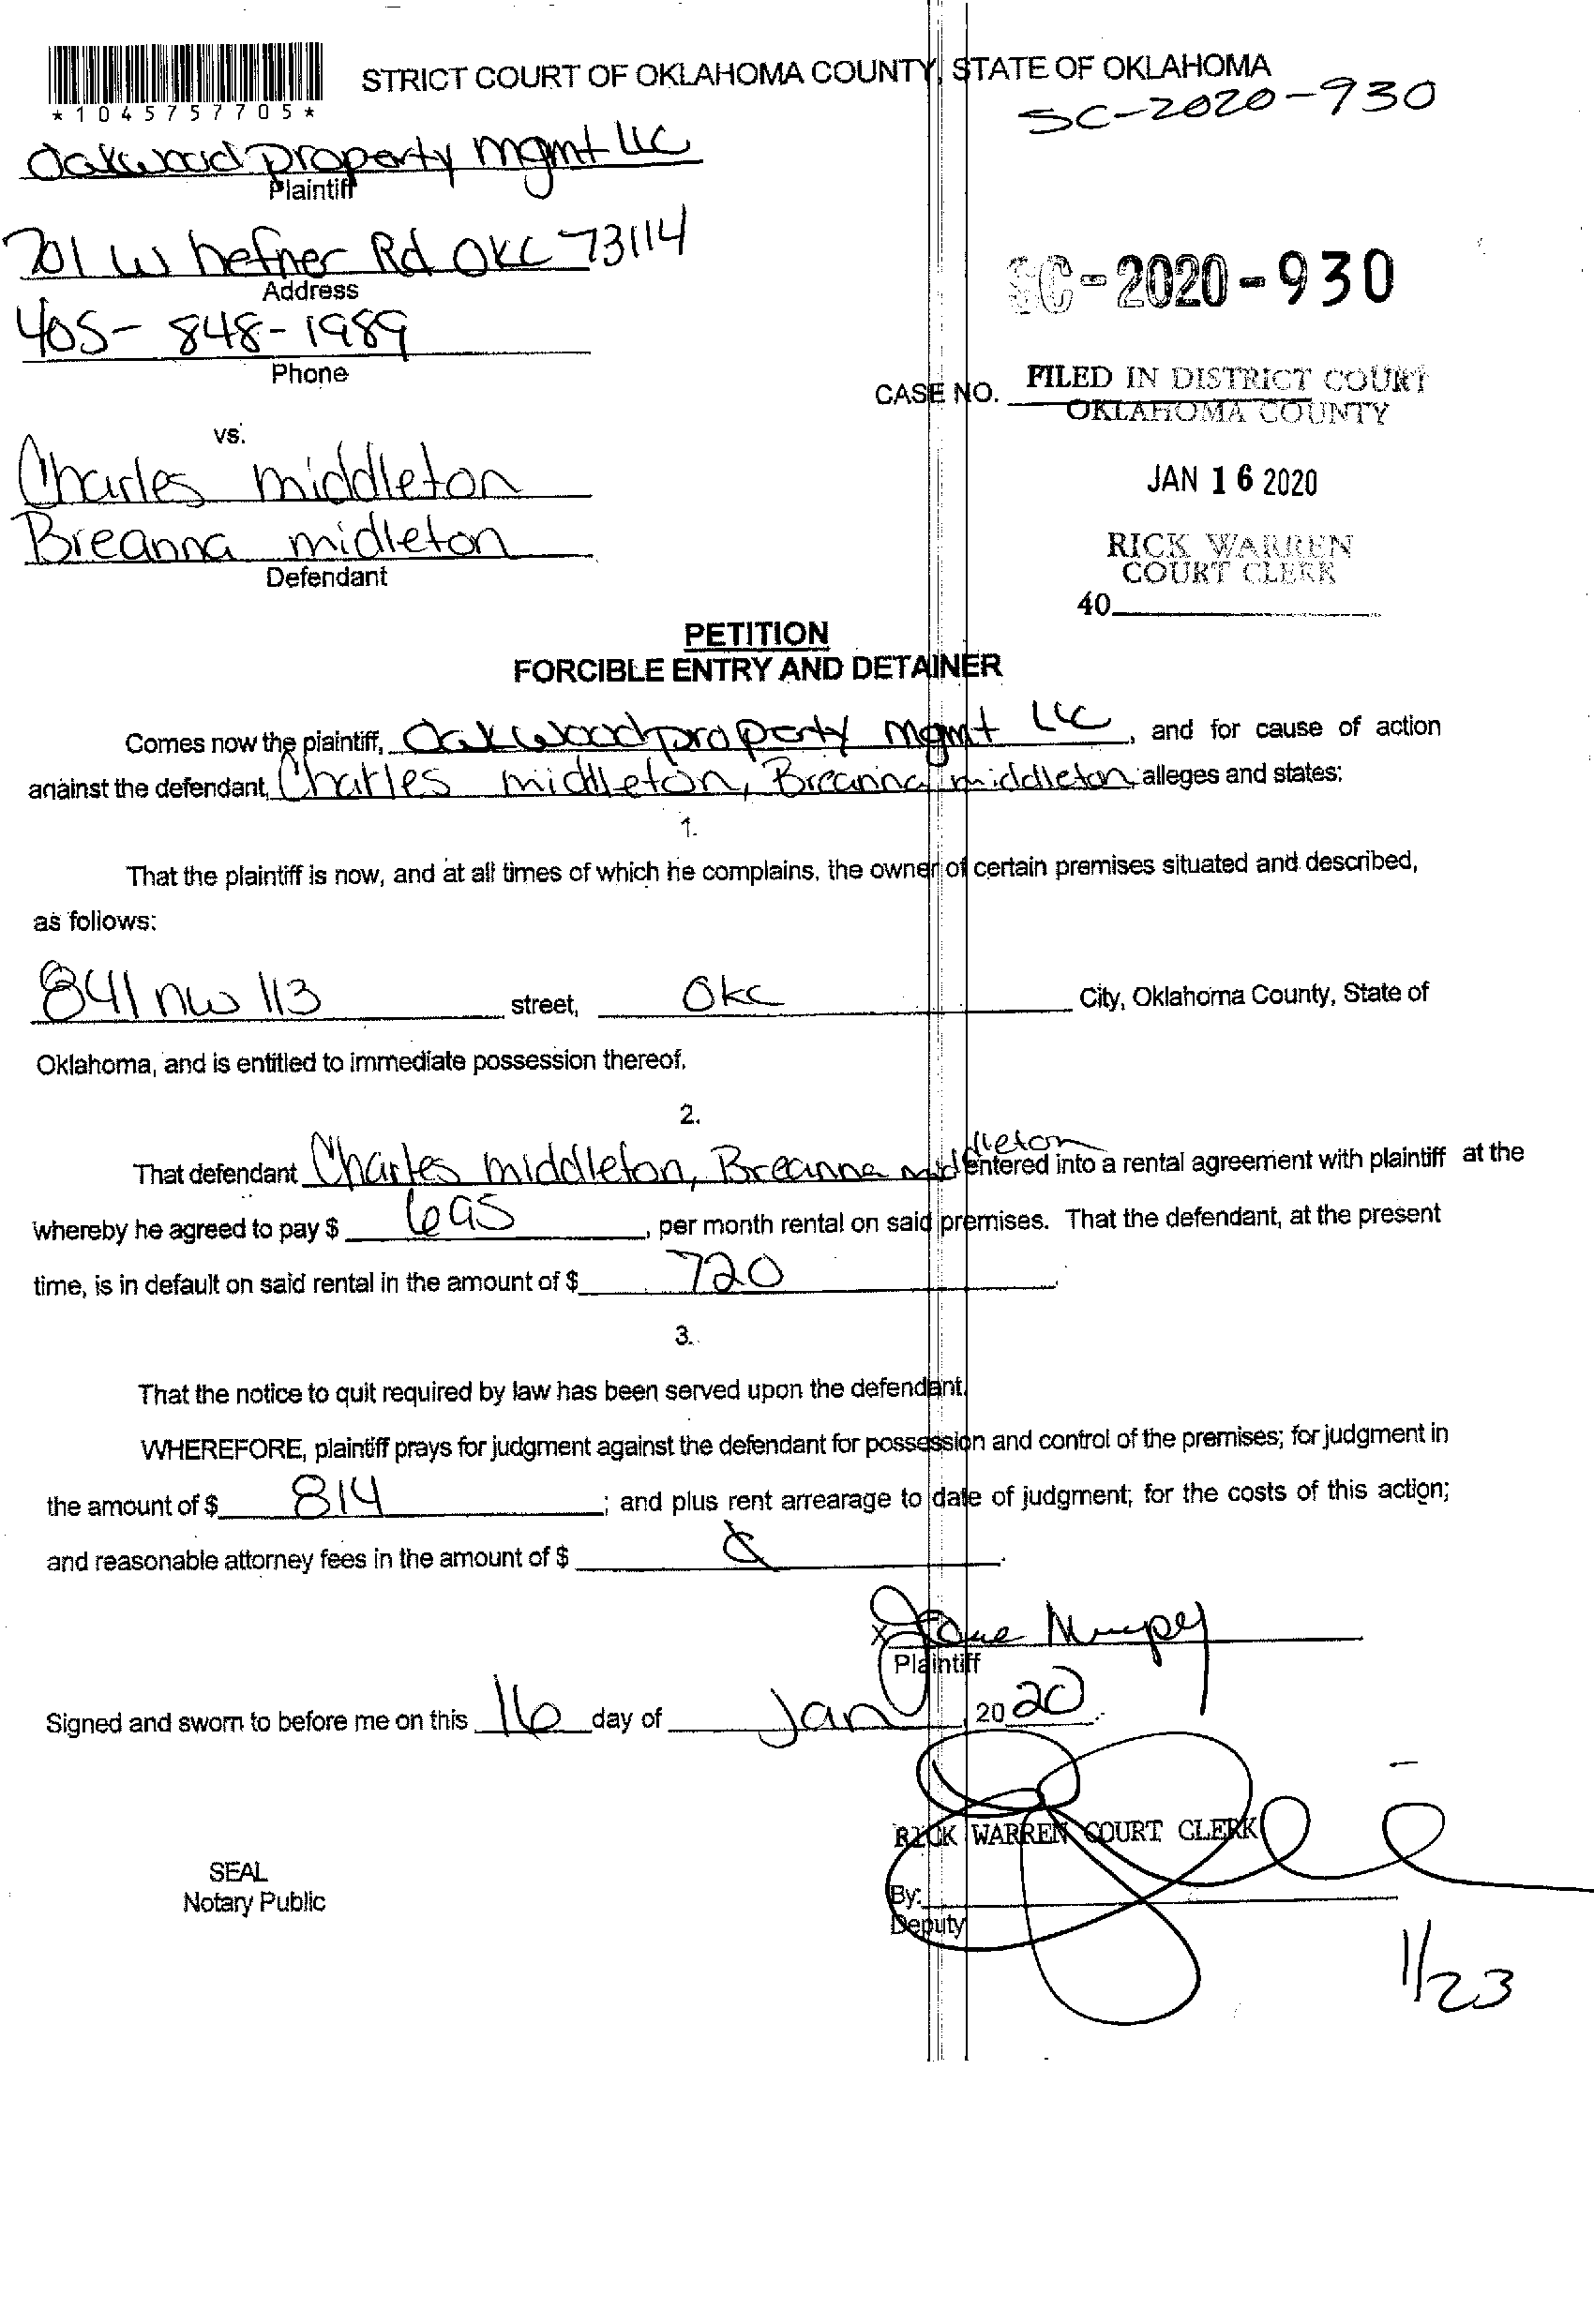 *1045757705*
STRICT COURT OF OKLAHOMA COUNTY, STATE OF OKLAHOMA
SC-2020-930
Oakwood property mgmt LLC
Plaintiff
701 W hefner Rd OKC 73114
Address
SC-2020-930
405-848-1989
Phone
CASE NO.
FILED IN DISTRICT COURT
OKLAHOMA COUNTY
vs.
Charles middleton
JAN 16 2020
Breanna midleton
Defendant
RICK WARREN
COURT CLERK
40
PETITION
FORCIBLE ENTRY AND DETAINER
Comes now the plaintiff, Oakwood property mgmt LLC, and for cause of action
against the defendant, Charles middleton, Breanna middleton alleges and states:
1.
That the plaintiff is now, and at all times of which he complains, the owner of certain premises situated and described,
as follows:
841 nw 113 street, Okc City, Oklahoma County, State of
Oklahoma, and is entitled to immediate possession thereof.
2.
That defendant Charles middleton, Breanna middleton entered into a rental agreement with plaintiff at the
whereby he agreed to pay $ 695, per month rental on said premises. That the defendant, at the present
time, is in default on said rental in the amount of $ 720.
3.
That the notice to quit required by law has been served upon the defendant.
WHEREFORE, plaintiff prays for judgment against the defendant for possession and control of the premises; for judgment in
the amount of $ 814; and plus rent arrearage to date of judgment; for the costs of this action;
and reasonable attorney fees in the amount of $
X
Plaintiff
Signed and sworn to before me on this 16 day of Jan, 2020.
RICK WARREN COURT CLERK
SEAL
Notary Public
By:
Deputy
1/23